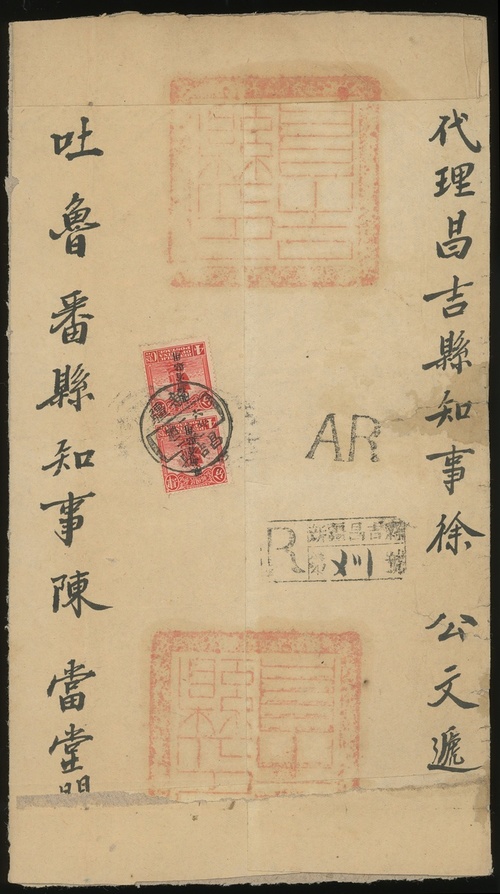 代理昌吉縣知事徐 公文遞
昌吉
縣印
AR
R 新疆昌吉縣
第 號
吐魯番縣知事陳 當堂